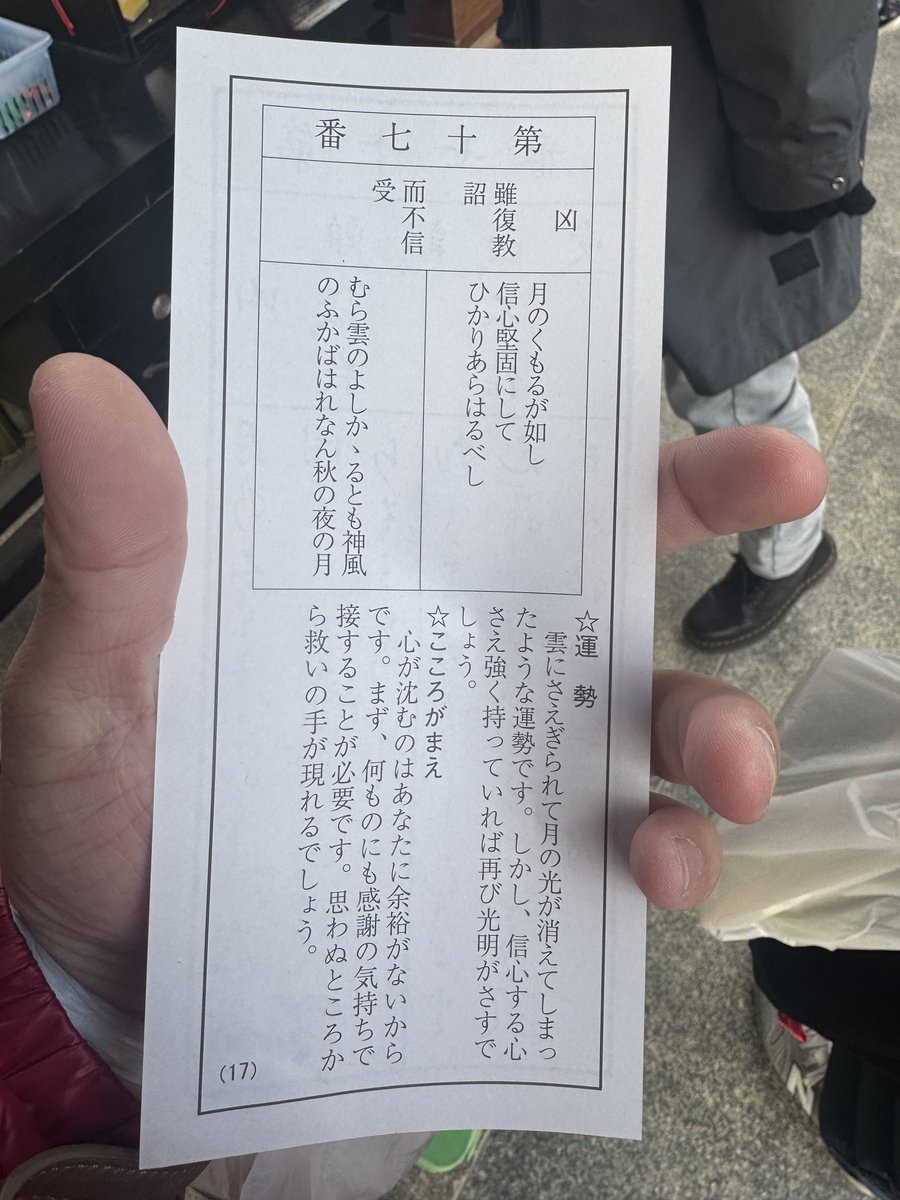 第十七番
凶
雖復教
詔
而不信
受
月のくもるが如し
信心堅固にして
ひかりあらはるべし
むら雲のよしかゝるとも神風
のふかばはれなん秋の夜の月
☆運 勢
雲にさえぎられて月の光が消えてしまっ
たような運勢です。しかし、信心する心
さえ強く持っていれば再び光明がさすで
しょう。
☆こころがまえ
心が沈むのはあなたに余裕がないから
です。まず、何ものにも感謝の気持ちで
接することが必要です。思わぬところか
ら救いの手が現れるでしょう。
(17)